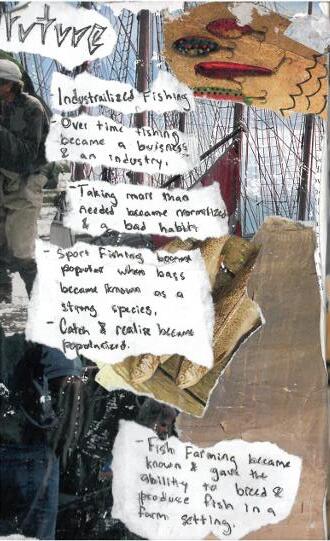 Future
- Industrailized Fishing
- Over time fishing
became a buisness
& an industry.
- Taking more than
needed became normalized
& a bad habit
- Sport Fishing became
popular when bass
became known as a
strong species.
- Catch & realise became
popularized.
- Fish Farming became
known & gave the
abillity to breed &
produce fish in a
farm setting.